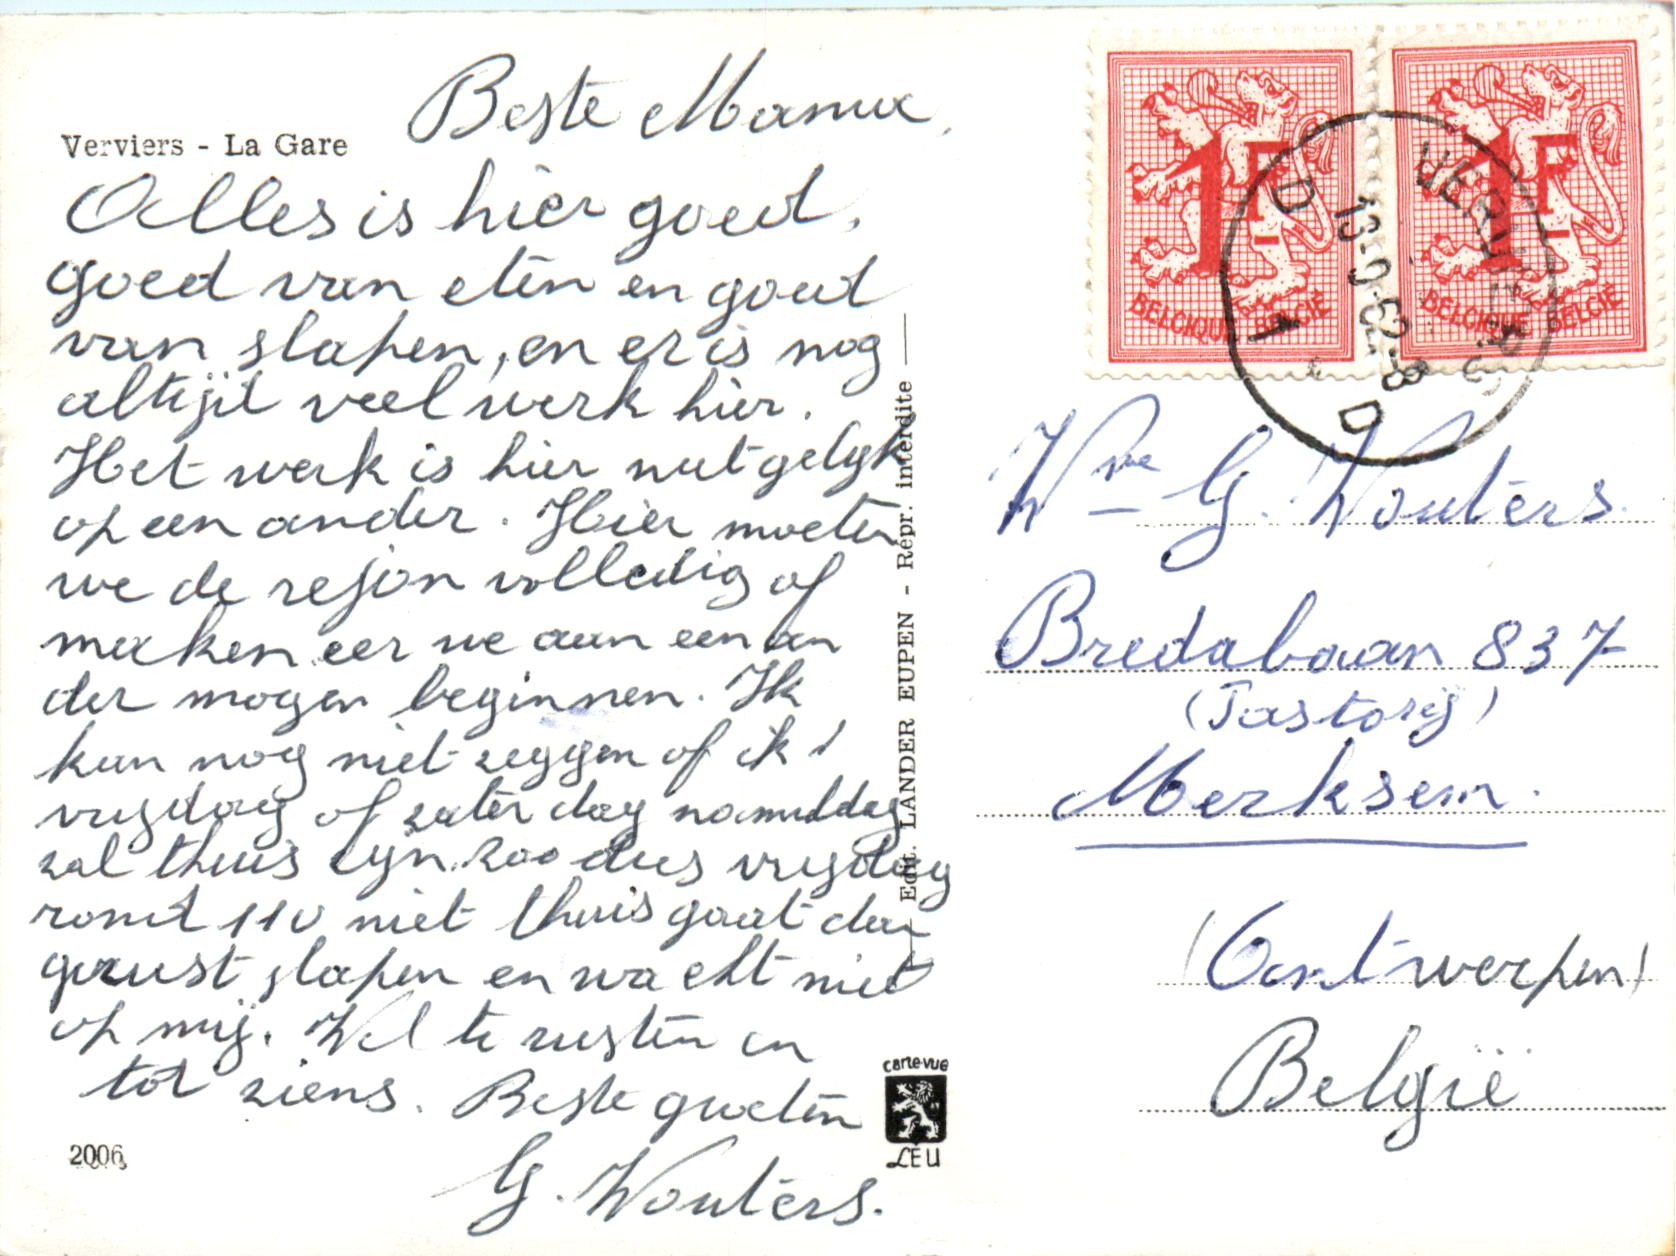 Verviers - La Gare
Beste Mama,
Alles is hier goed,
goed van eten en goed
van slapen, en er is nog
altijd veel werk hier.
Het werk is hier niet gelijk
op een ander. Hier moeten
we de rejon volledig af
maken eer we aan een an
der mogen beginnen. Ik
kan nog niet zeggen of ik
vrijdag of zaterdag namiddag
zal thuis zijn. Zoo dus vrijdag
rond 11u niet thuis gaat dan
gerust slapen en wacht niet
op mij. Wel te rusten en
tot ziens. Beste groeten
G. Wouters.
2006
Edit. LANDER EUPEN - Repr. interdite
carte-vue
LEU
1F
BELGIQUE BELGIË
1F
BELGIQUE BELGIË
VERVIERS
D 1 D
13-9-62-8
Wme G. Wouters.
Bredabaan 837
(Pastorij)
Merksem.
(Antwerpen)
België